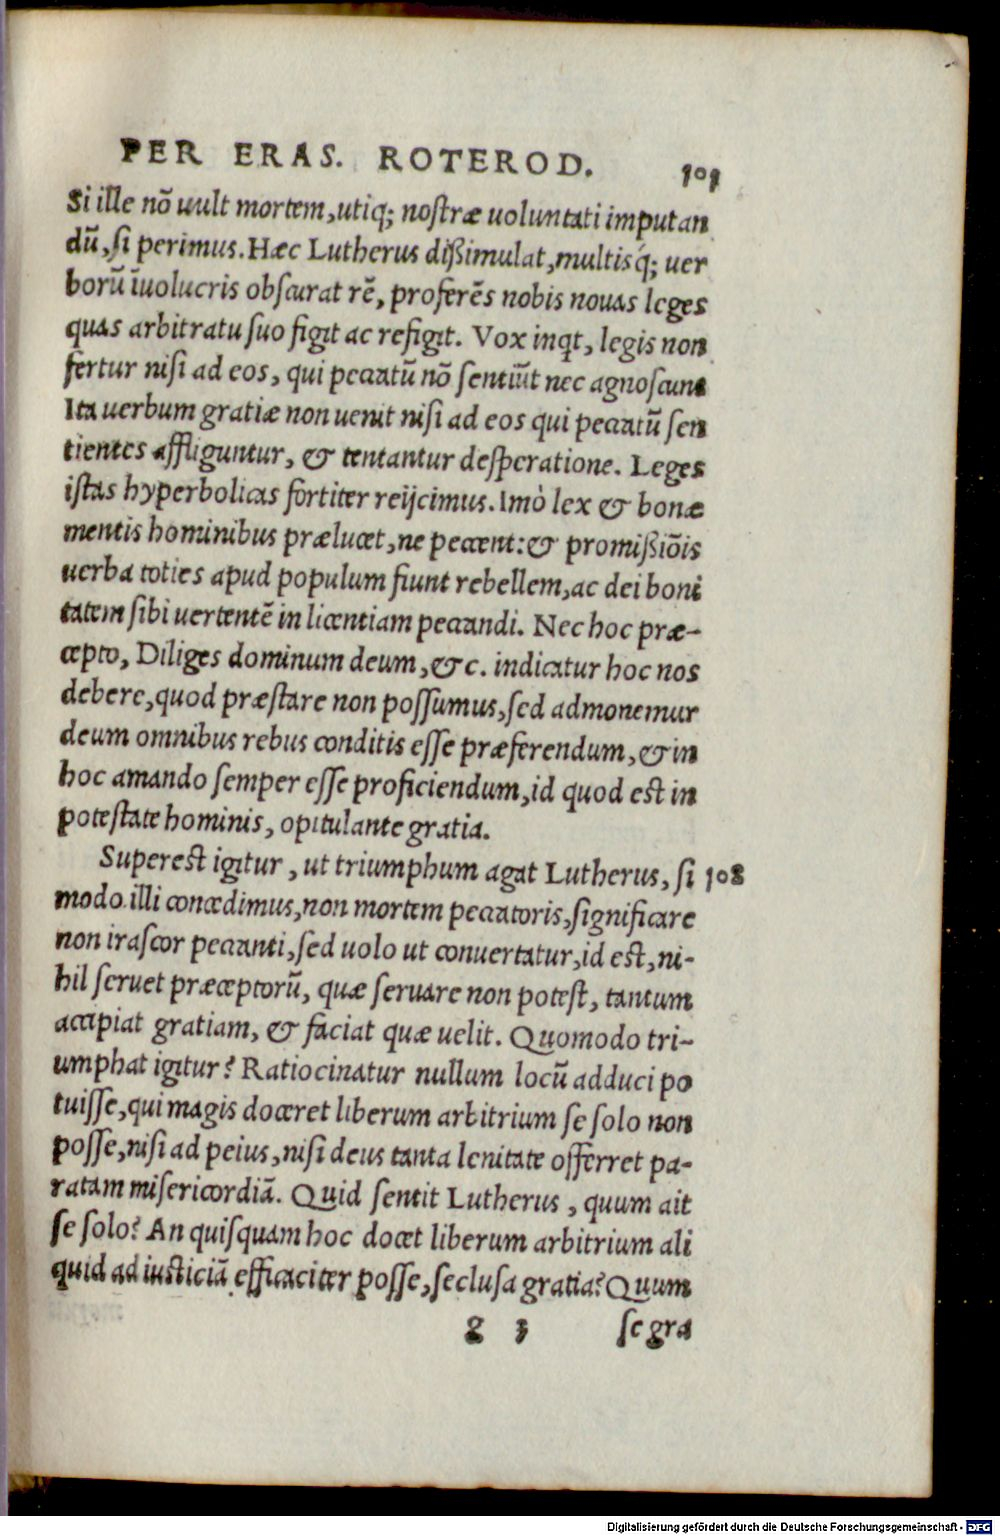 PER ERAS. ROTEROD. 101
Si ille nõ uult mortem, utiq; nostræ uoluntati imputan
dũ, si perimus. Hæc Lutherus dißimulat, multisq́; uer
borũ ĩuolucris obscurat rẽ, proferẽs nobis nouas leges
quas arbitratu suo figit ac refigit. Vox inqt, legis non
fertur nisi ad eos, qui peccatũ nõ sentiũt nec agnoscunt
Ita uerbum gratiæ non uenit nisi ad eos qui peccatũ sen
tientes affliguntur, & tentantur desperatione. Leges
istas hyperbolicas fortiter reijcimus. Imò lex & bonæ
mentis hominibus prælucet, ne peccent: & promißiõis
uerba toties apud populum fiunt rebellem, ac dei boni
tatem sibi uertentẽ in licentiam peccandi. Nec hoc præ-
cepto, Diliges dominum deum, &c. indicatur hoc nos
debere, quod præstare non possumus, sed admonemur
deum omnibus rebus conditis esse præferendum, & in
hoc amando semper esse proficiendum, id quod est in
potestate hominis, opitulante gratia.
Superest igitur, ut triumphum agat Lutherus, si 108
modo illi concedimus, non mortem peccatoris, significare
non irascor peccanti, sed uolo ut conuertatur, id est, ni-
hil seruet præceptorũ, quæ seruare non potest, tantum
accipiat gratiam, & faciat quæ uelit. Quomodo tri-
umphat igitur? Ratiocinatur nullum locũ adduci po
tuisse, qui magis doceret liberum arbitrium se solo non
posse, nisi ad peius, nisi deus tanta lenitate offerret pa-
ratam misericordiã. Quid sentit Lutherus, quum ait
se solo? An quisquam hoc docet liberum arbitrium ali
quid ad iusticiã efficaciter posse, seclusa gratia? Quum
g 3 se gra
Digitalisierung gefördert durch die Deutsche Forschungsgemeinschaft - DFG